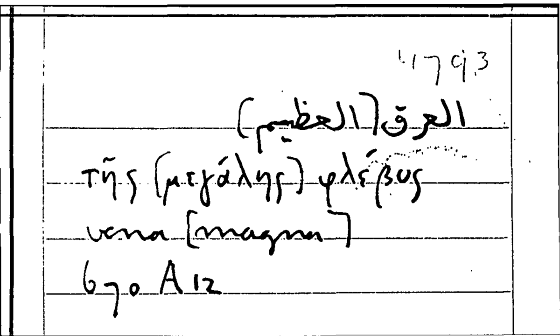 4793
العرق [العظيم]
τῆς [μεγάλης] φλέβος
vena [magna]
670 A 12